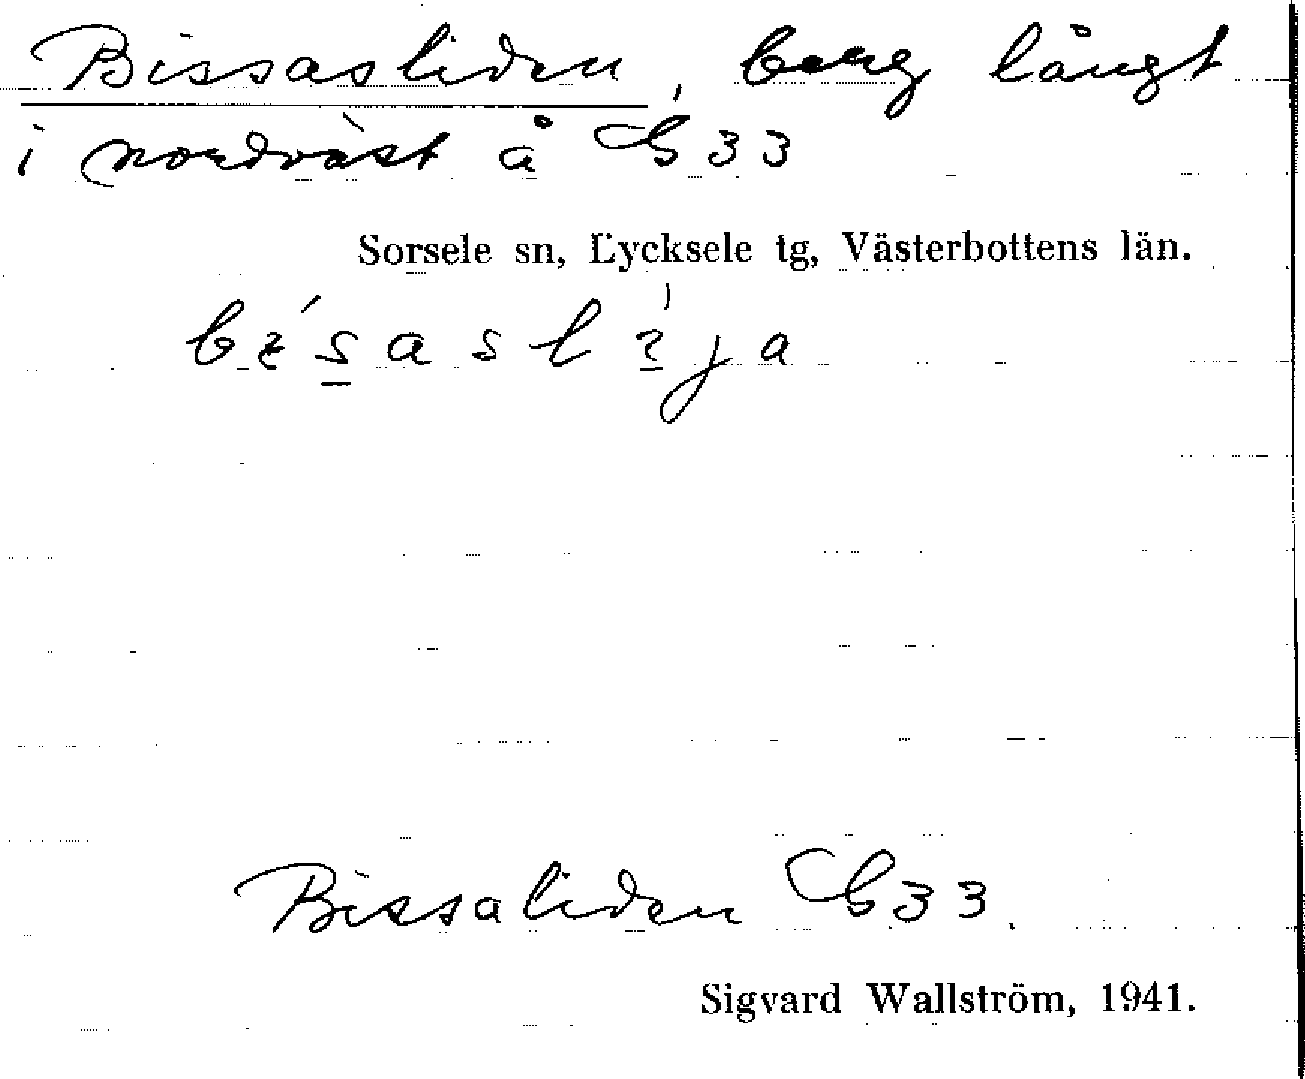 Bissasliden, berg långt
i nordväst å G33
Sorsele sn, Lycksele tg, Västerbottens län.
Bissaliden G33.
Sigvard Wallström, 1941.